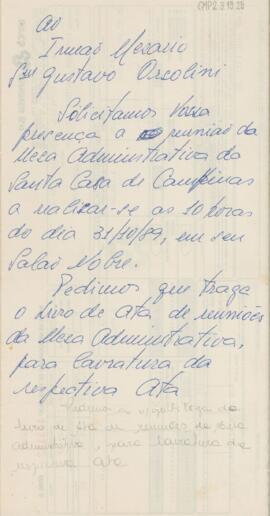 CMP2.3.19.26
ao
Irmão Mesario
Gustavo Orsolini
Solicitamos Vossa
presença a reunião da
Mesa Administrativa da
Santa Casa de Campinas
a realizar-se as 10 horas
do dia 31/10/89, em seu
Salão Nobre.
Pedimos que traga
o livro de ata de reuniões
da Mesa Administrativa,
para lavratura da
respectiva Ata
livro de ata de reuniões da Mesa
administrativa, para lavratura da
respectiva Ata